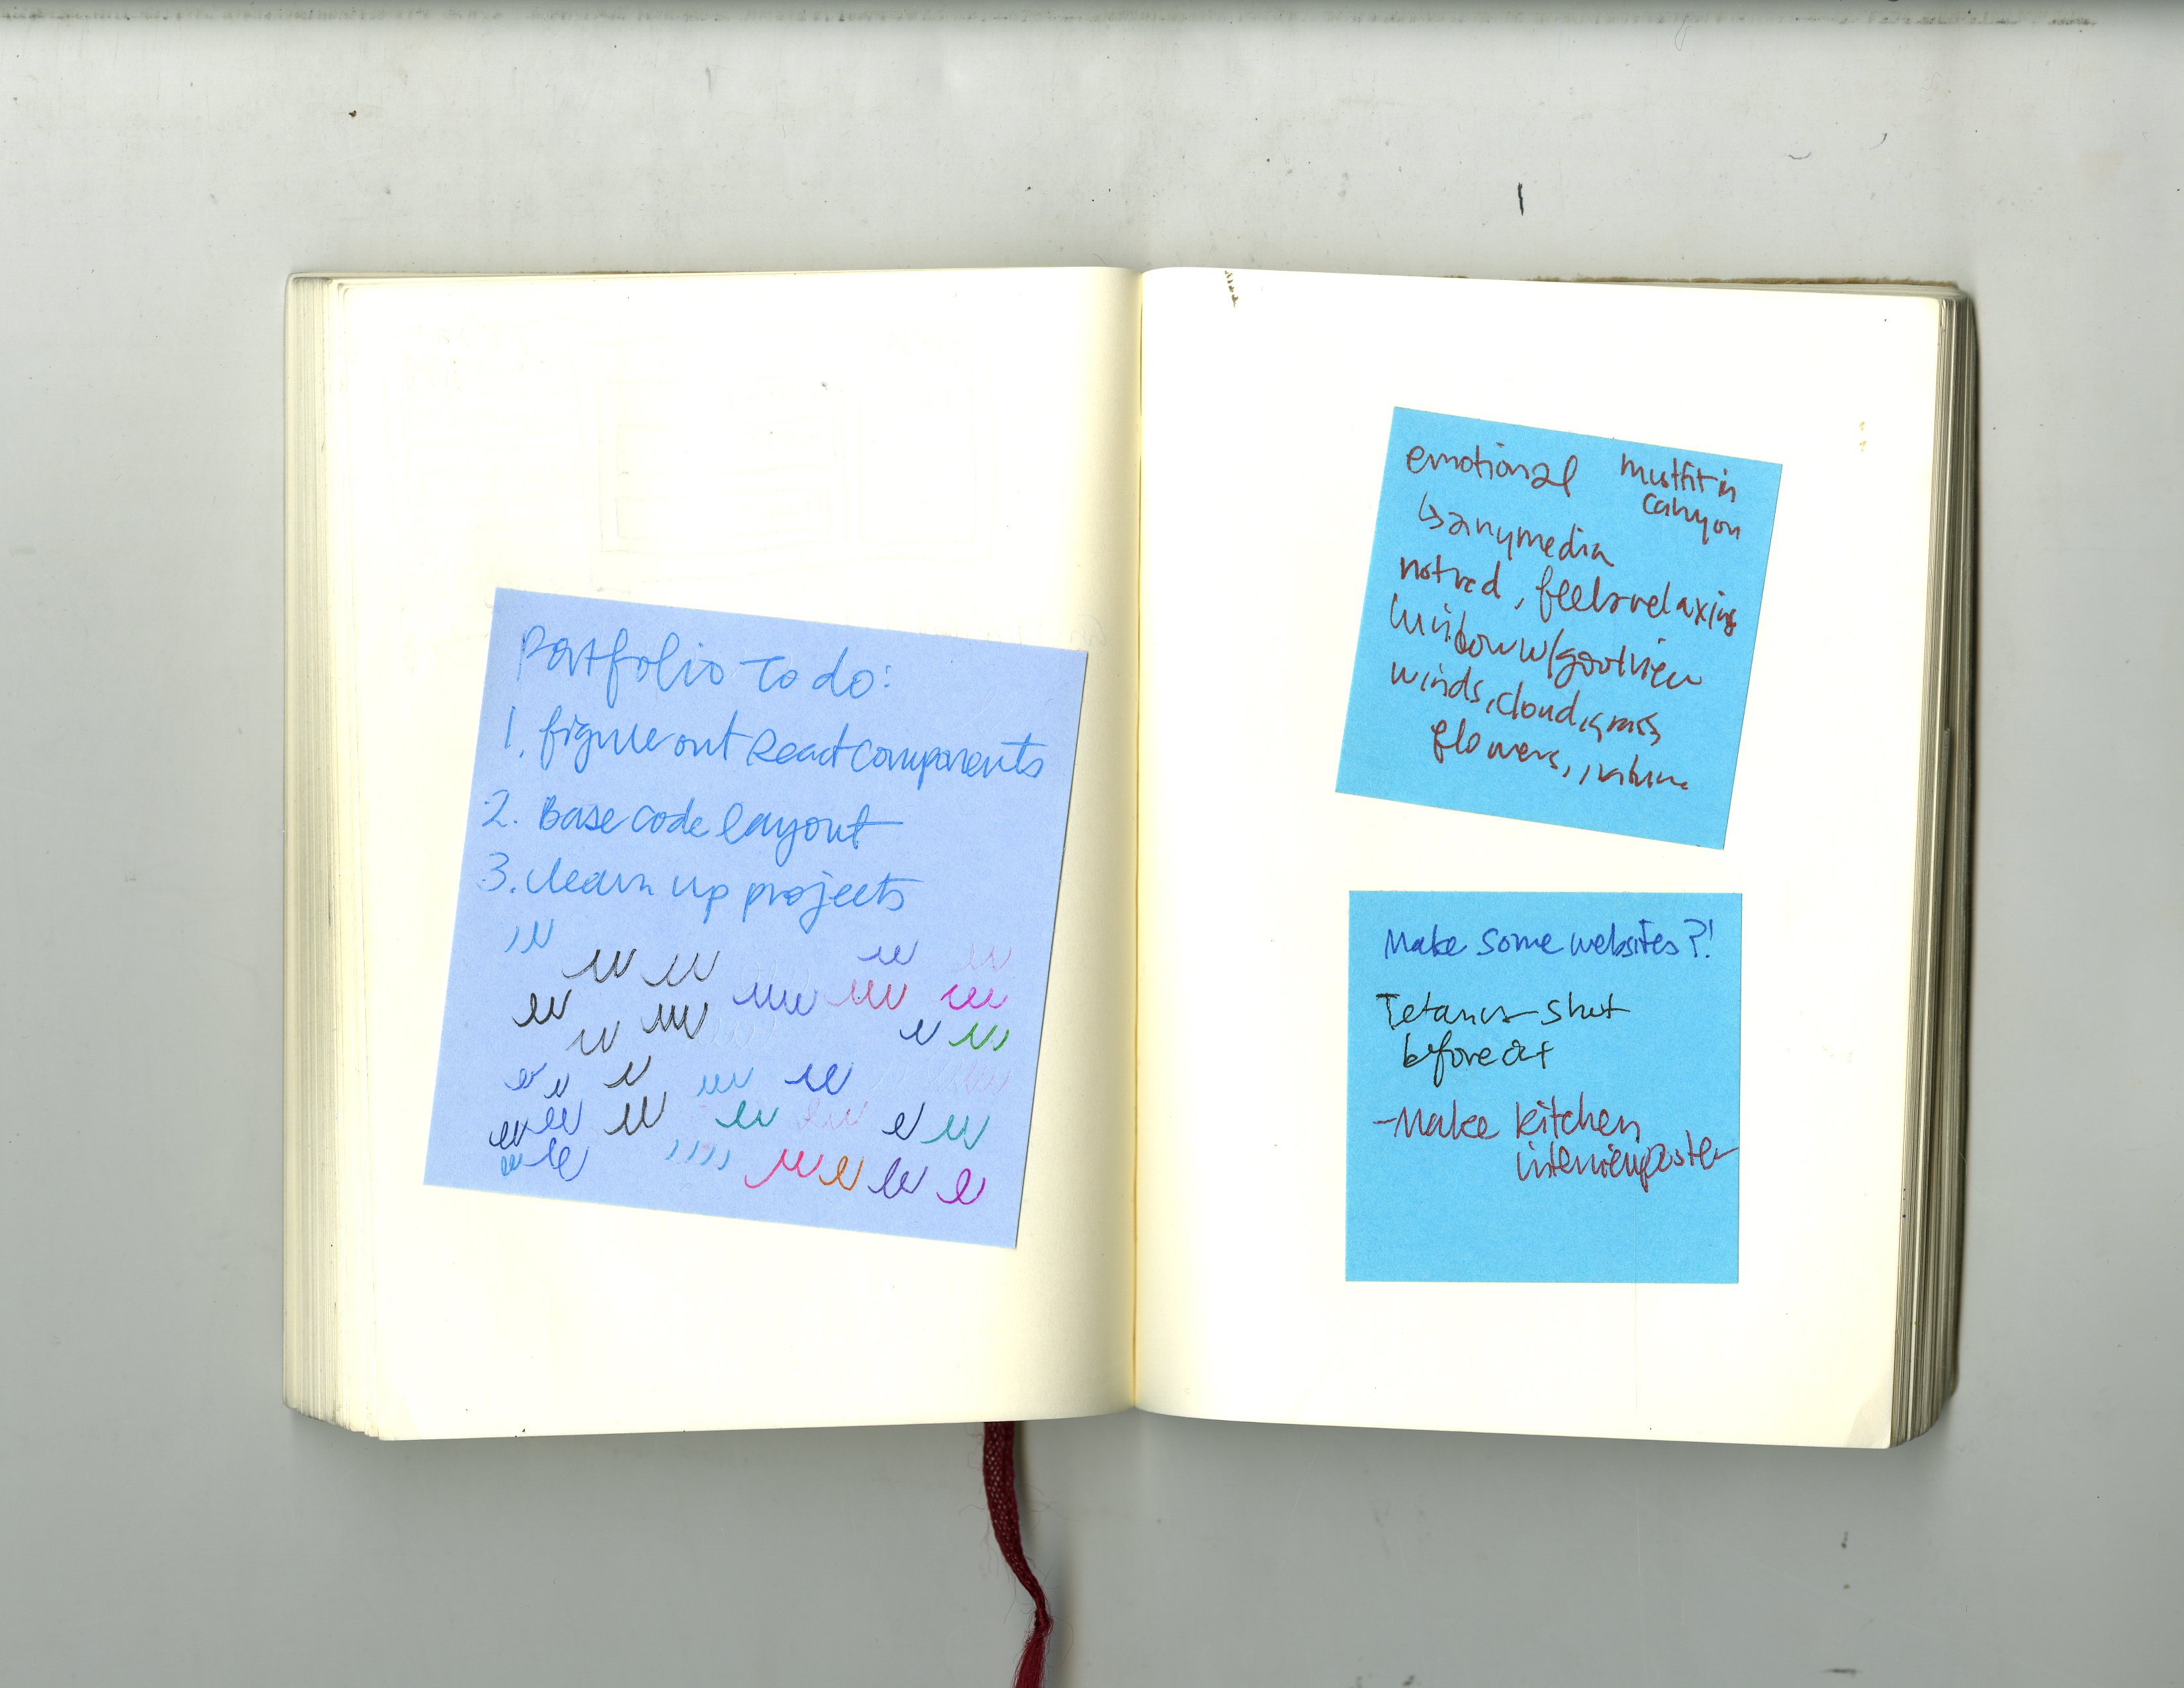 Portfolio To do:
1. figure out React Components
2. Base code layout
3. clean up projects
emotional
must fit in
canyon
↳ any media
not red, feels relaxing
window w/ good view
winds, cloud, grass
flowers,
Make some websites?!
Tetanus shot
before Oct
- Make kitchen
interview poster